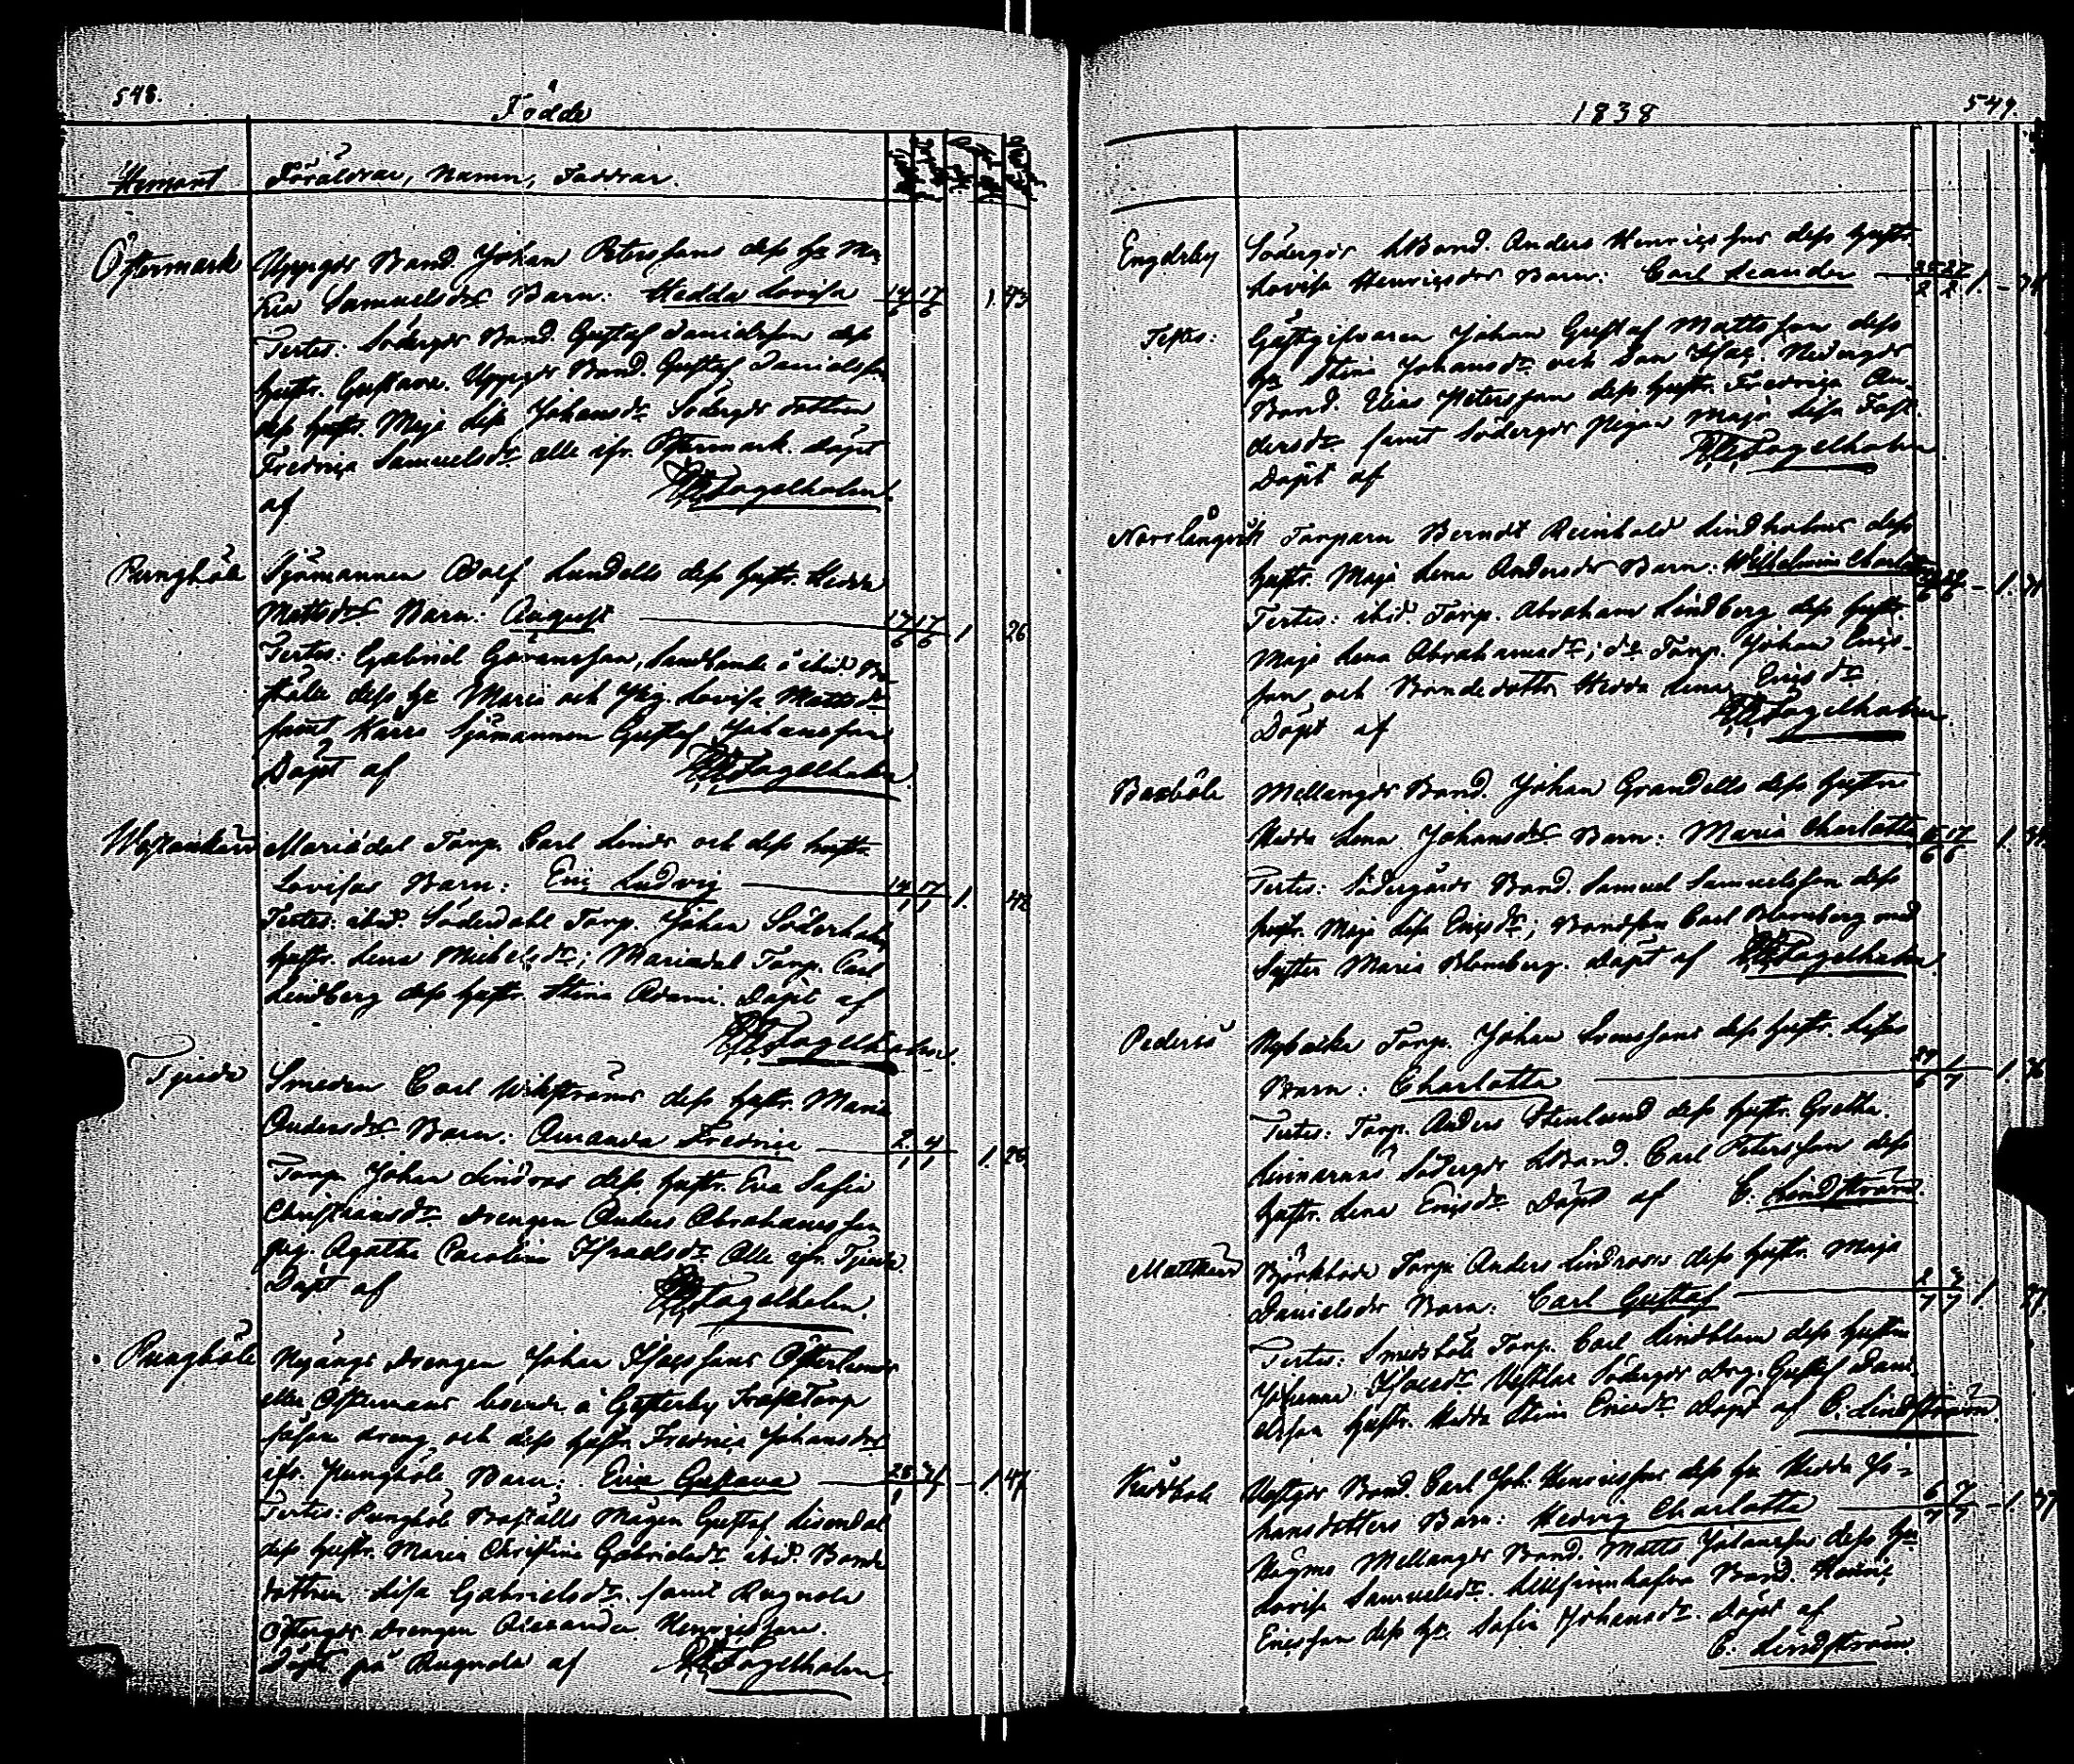 548.
Födde
Hemort Föräldrar, Namn, Faddrar.
Östermark Uppegds Bond. Johan Peterssons dess h. Ma
ria Samuelsdrs Barn: Hedda Lovisa 14/6 17/6 1. 43
Testes: Södergds Bond. Gustaf Danielsson dess
hustr. Gustava. Uppegds Bond. Gustaf Danielsson
dess hustr. Maja Lisa Johansdr Södergds dottren
Fredrica Samuelsdr alle ifr. Östermark. Döpt
af Fagelholm.
Pungböle Sjömannen Adolf Lundells dess hustr. Hedda
Mattsdrs Barn: August 17/6 17/6 1 26
Testes: Gabriel Göransson, Landbonde å ibid. Bo
ställe dess h. Maria och Pig. Lovisa Mattsdr
samt Karrs Sjömannen Gustaf Johansson
Döpt af Fagelholm
Westankärr Mariedal Torp. Carl Linds och dess hustr.
Lovisas Barn: Eric Ludvig 14/1 17/1 1. 48
Testes: ibid. Söderdahl Torp. Johan Söderholm
hustr. Lena Michelsdr; Mariedal Torp. Carl
Lindberg dess hustr. Stina Adami. Döpt af
Fagelholm.
Tjuda Smeden Carl Wikströms dess hustr. Maria
Andersdrs Barn: Amanda Fredrica 2/1 4/1 1. 26
Torp. Johan Lindroos dess hustr. Eva Sofia
Christiansdr Drengen Anders Abrahamsson
pig. Agatha Carolina Israelsdr Alle ifr. Tjuda.
Döpt af Fagelholm.
Pungböle Nygångs Drengen Johan Isacssons Österlunds
eller Östermans boende å Gesterby Torp
dreng och dess hustr. Fredrica Johansdrs
ifr. Pungböle Barn: Erica Gustava 28/1 1. 47
Testes: Pungböle Boställs Mågen Gustaf Lisendal
dess hustr. Maria Christina Gabrielsdr ibid. Bonde
dottren Lisa Gabrielsdr samt Rugnola
Östergds Drengen Alexander Henricsson.
Döpt på Rugnola af Fagelholm.
1838 549.
Engdrby Södergds LBond. Anders Henricssons dess hustr.
Lovisa Henricsdrs Barn: Carl Leander 25/2 27/2 1. -
Testes: Gästgifvaren Johan Gustaf Mattsson dess
h. Stina Johansdr och Son Isac. Nedergds
Bond. Elias Petersson dess hustr. Fredrica An-
dersdr samt Södergds Pigan Maja Lisa
Döpt af Fagelholm
Norrlångvik Torparn Berndt Reinhold Lindholms dess
hustr. Maja Lena Andersdrs Barn: Wilhelmina Charlotta - 1.
Testes: ibid. Torp. Abraham Lindberg dess hustr.
Maja Lena Abrahamsdr; do Torp. Johan Erics-
son och Bondedottr Hedda Lena Ericsdr
Döpt af Fagelholm
Boxböle Mellangds Bond. Johan Grandells dess hustru
Hedda Lena Johansdrs Barn: Maria Charlotta 15/6 17/6 1.
Testes: Södergårds Bond. Samuel Samuelsson dess
hustr. Maja Lisa Ericsdr; Bondson Carl Blomberg med
Syster Maria Blomberg. Döpt af Fagelholm.
Pedersö Nybacka Torp. Johan Svenssons dess hustr. Lisas
Barn: Charlotta 1/7 1. 36
Testes: Torp. Anders Stenlund dess hustr. Gretha.
Linnarnäs Södergds LBond. Carl Petersson dess
hustr. Lena Ericsdr Döpt af C. Lindström.
Mattkärr Björkboda Torp. Anders Lindroos dess hustr. Maja
Danielsdrs Barn: Carl Gustaf 2/7 1.
Testes: Smedsböle Torp. Carl Lindblom dess hustru
Johanna Isacsdr Södergds Drg. Gustaf Dani
elsson hustr. Hedda Stina Ericsdr Döpt af C. Lindström.
Wästgds Bond. Carl Joh. Henricssons dess h. Hedda Jo-
hansdotters Barn: Hedvig Charlotta 6/7 7/7 - 1.
Mellangds Bond. Matts Johansson dess h.
Lovisa Samuelsdr. Bond. Henric
Ericsson dess h. Sofia Johansdr. Döpt af
C. Lindström.